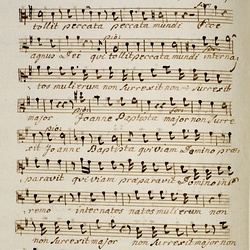 tollit peccata peccata mundi Ecce
agnus Dei qui tollit peccata mundi interna
tos mulierum non surrexit non surrexit
major Joanne Baptista major non surre
xit Joanne Baptista qui viam Domino præ
paravit qui viam præparavit Domino in
remo internatos natos mulierum non
non surrexit major non surrexit major non